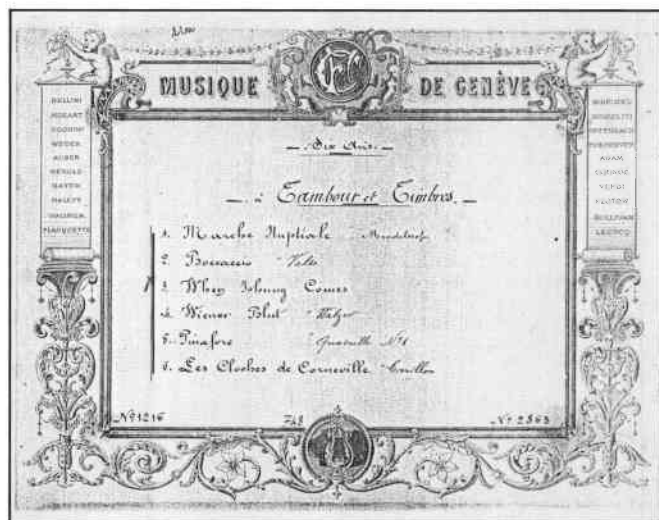 MUSIQUE DE GENÈVE
BELLINI
MOZART
ROSSINI
WEBER
AUBER
HEROLD
HAYDN
HALEVY
PLANQUETTE
MEYERBEER
ADAM
GOUNOD
VERDI
FLOTOW
SULLIVAN
LECOCQ
Dix Airs
à Tambour et Timbres
1. Marche Nuptiale
2. Boccaccio Valse
3. When Johnny Comes
4. Wiener Blut
5. Pinafore Quadrille No 1
6. Les Cloches de Corneville
No 1216
748
No 2863